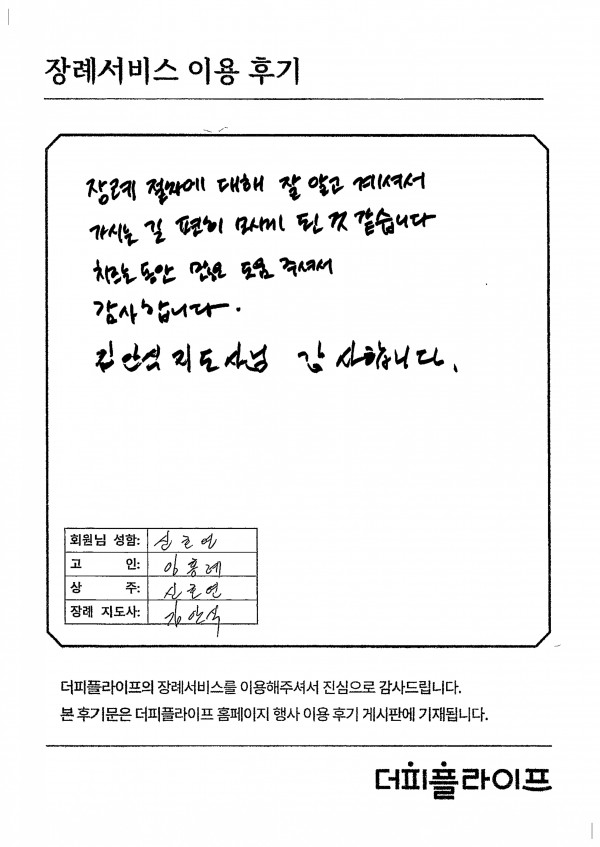 장례서비스 이용 후기
장례 절차에 대해 잘 알고 계셔서
가시는 길 편히 모시게 된 것 같습니다
치르는 동안 많은 도움 주셔서
감사합니다.
김안식 지도사님 감사합니다.
회원님 성함: 신호연
고 인: 양홍례
상 주: 신호연
장례 지도사: 김안식
더피플라이프의 장례서비스를 이용해주셔서 진심으로 감사드립니다.
본 후기문은 더피플라이프 홈페이지 행사 이용 후기 게시판에 기재됩니다.
더피플라이프